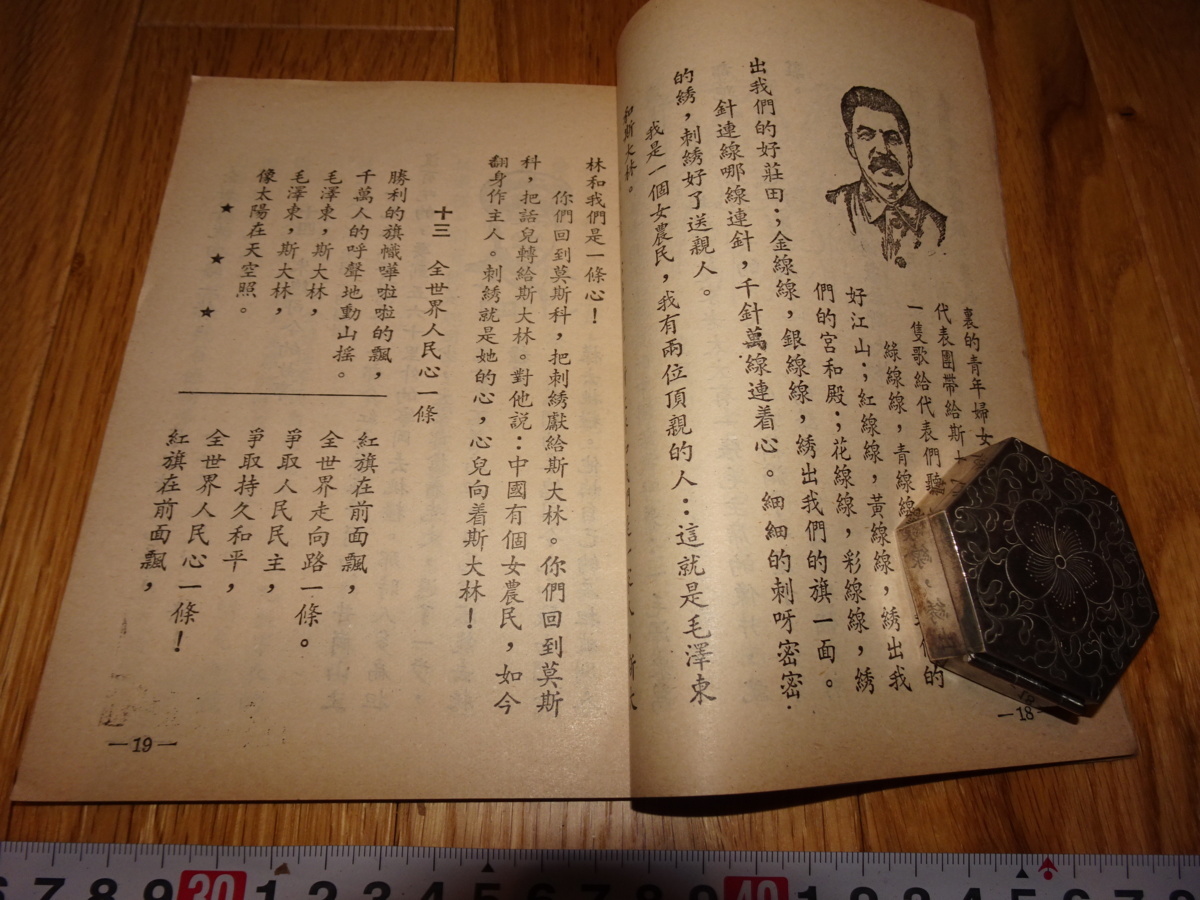 裏的青年婦女
代表團帶給斯
一隻歌給代表們聽
綠線線,青線線,綉出我們的
好江山;紅線線,黃線線,綉出我
們的宮和殿;花線線,彩線線,綉
出我們的好莊田;金線線,銀線線,綉出我們的旗一面。
針連線哪線連針,千針萬線連着心。細細的刺呀密密
的綉,刺綉好了送親人。
我是一個女農民,我有兩位頂親的人:這就是毛澤東
和斯大林。
—18—
林和我們是一條心!
你們回到莫斯科,把刺綉獻給斯大林。你們回到莫斯
科,把話兒轉給斯大林。對他説:中國有個女農民,如今
翻身作主人。刺綉就是她的心,心兒向着斯大林!
十三 全世界人民心一條
勝利的旗幟嘩啦啦的飄,
千萬人的呼聲地動山搖。
毛澤東,斯大林,
毛澤東,斯大林,
像太陽在天空照。
★ ★ ★
紅旗在前面飄,
全世界走向路一條。
爭取人民民主,
爭取持久和平,
全世界人民心一條!
紅旗在前面飄,
—19—
7 8 9 30 1 2 3 4 5 6 7 8 9 40 1 2 3 4 5 6 7 8